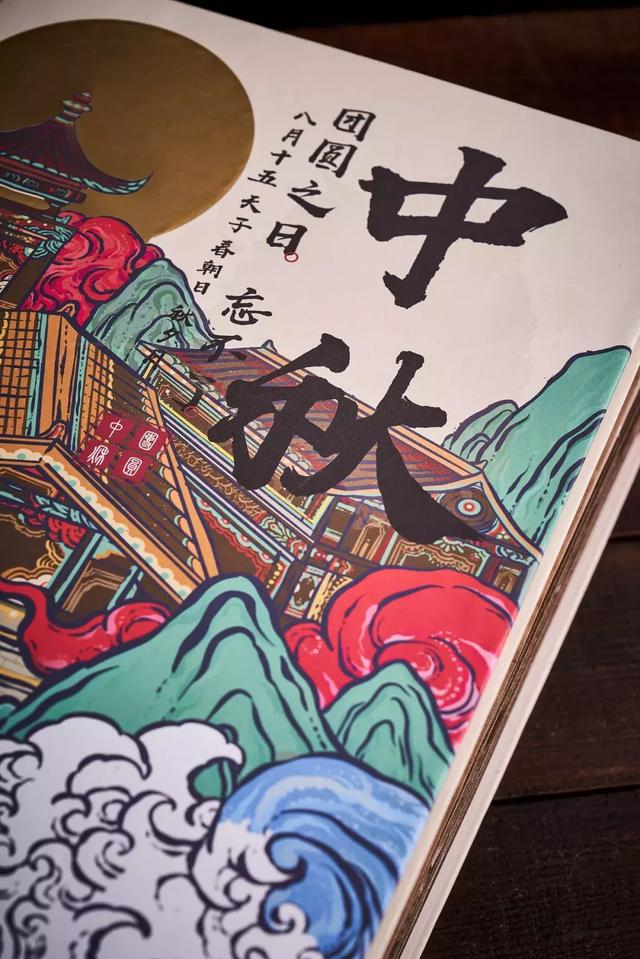 中秋
团圆之日。忘不了
八月十五天子春朝日秋夕月
團圓
中秋